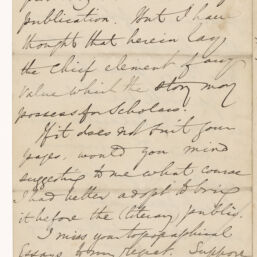 publication. But I have
thought that herein lay
the chief element of any
value which the story may
possess for Scholars.
If it does not suit your
pages, would you mind
suggesting to me what course
I had better adopt to bring
it before the literary public.
I miss your topographical
Essays to my repast. Suppose